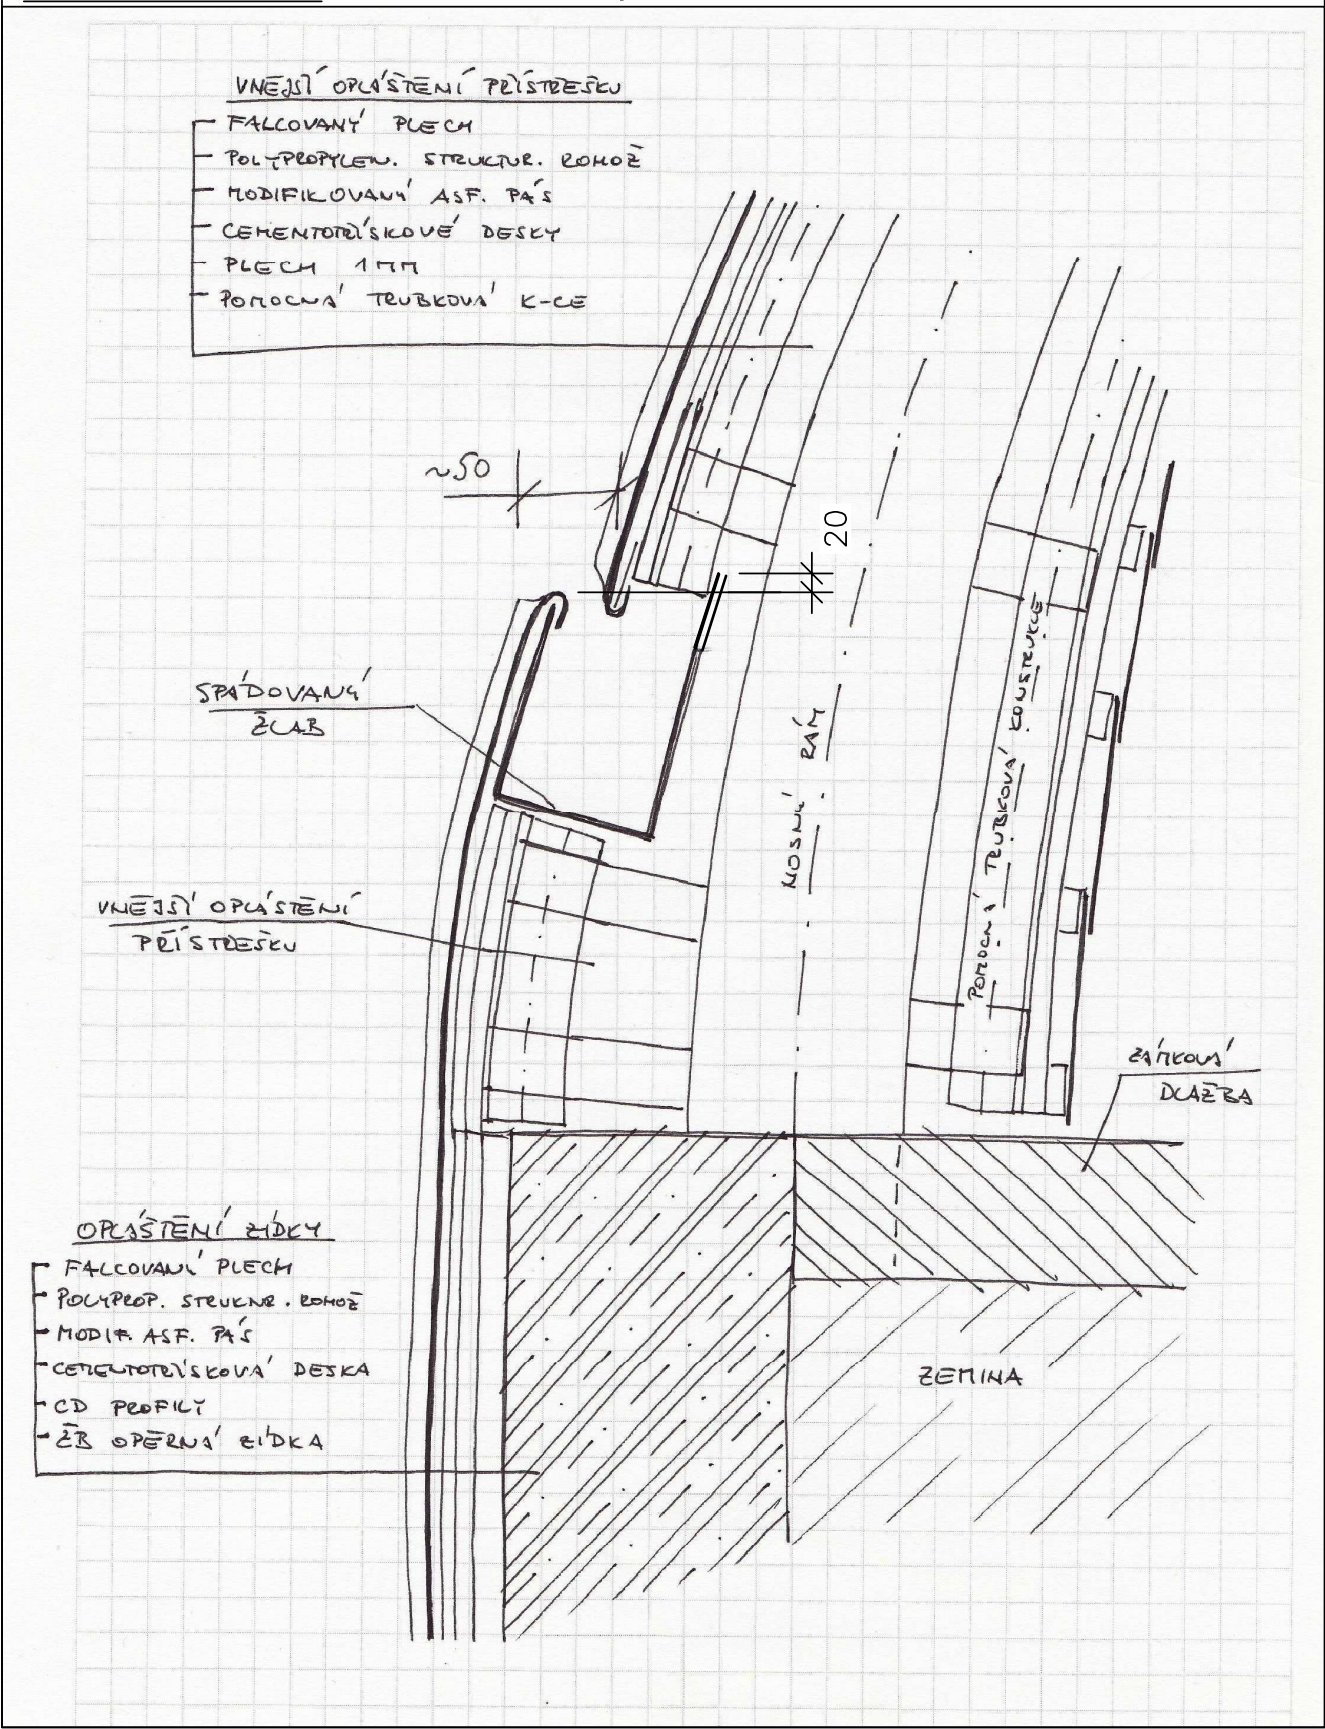 VNEJŠÍ OPLÁŠTENÍ PŘÍSTREŠKU
FALCOVANÝ PLECH
POLYPROPYLEN. STRUKTUR. ROHOŽ
MODIFIKOVANÝ ASF. PÁS
CEMENTOTŘÍSKOVÉ DESKY
PLECH 1MM
POMOCNÁ TRUBKOVÁ K-CE
~50
20
SPÁDOVANÝ
ŽLAB
NOSNÝ RÁM
POMOCNÁ TRUBKOVÁ KONSTRUKCE
VNĚJŠÍ OPLÁŠTENÍ
PŘÍSTREŠKU
ZÁMKOVÁ
DLAŽBA
OPLÁŠTĚNÍ ZÍDKY
FALCOVANÍ PLECH
POLYPROP. STRUKTUR. ROHOŽ
MODIF. ASF. PÁS
CEMENTOTŘÍSKOVÁ DESKA
CD PROFILY
ŽB OPĚRNÁ ZÍDKA
ZEMINA